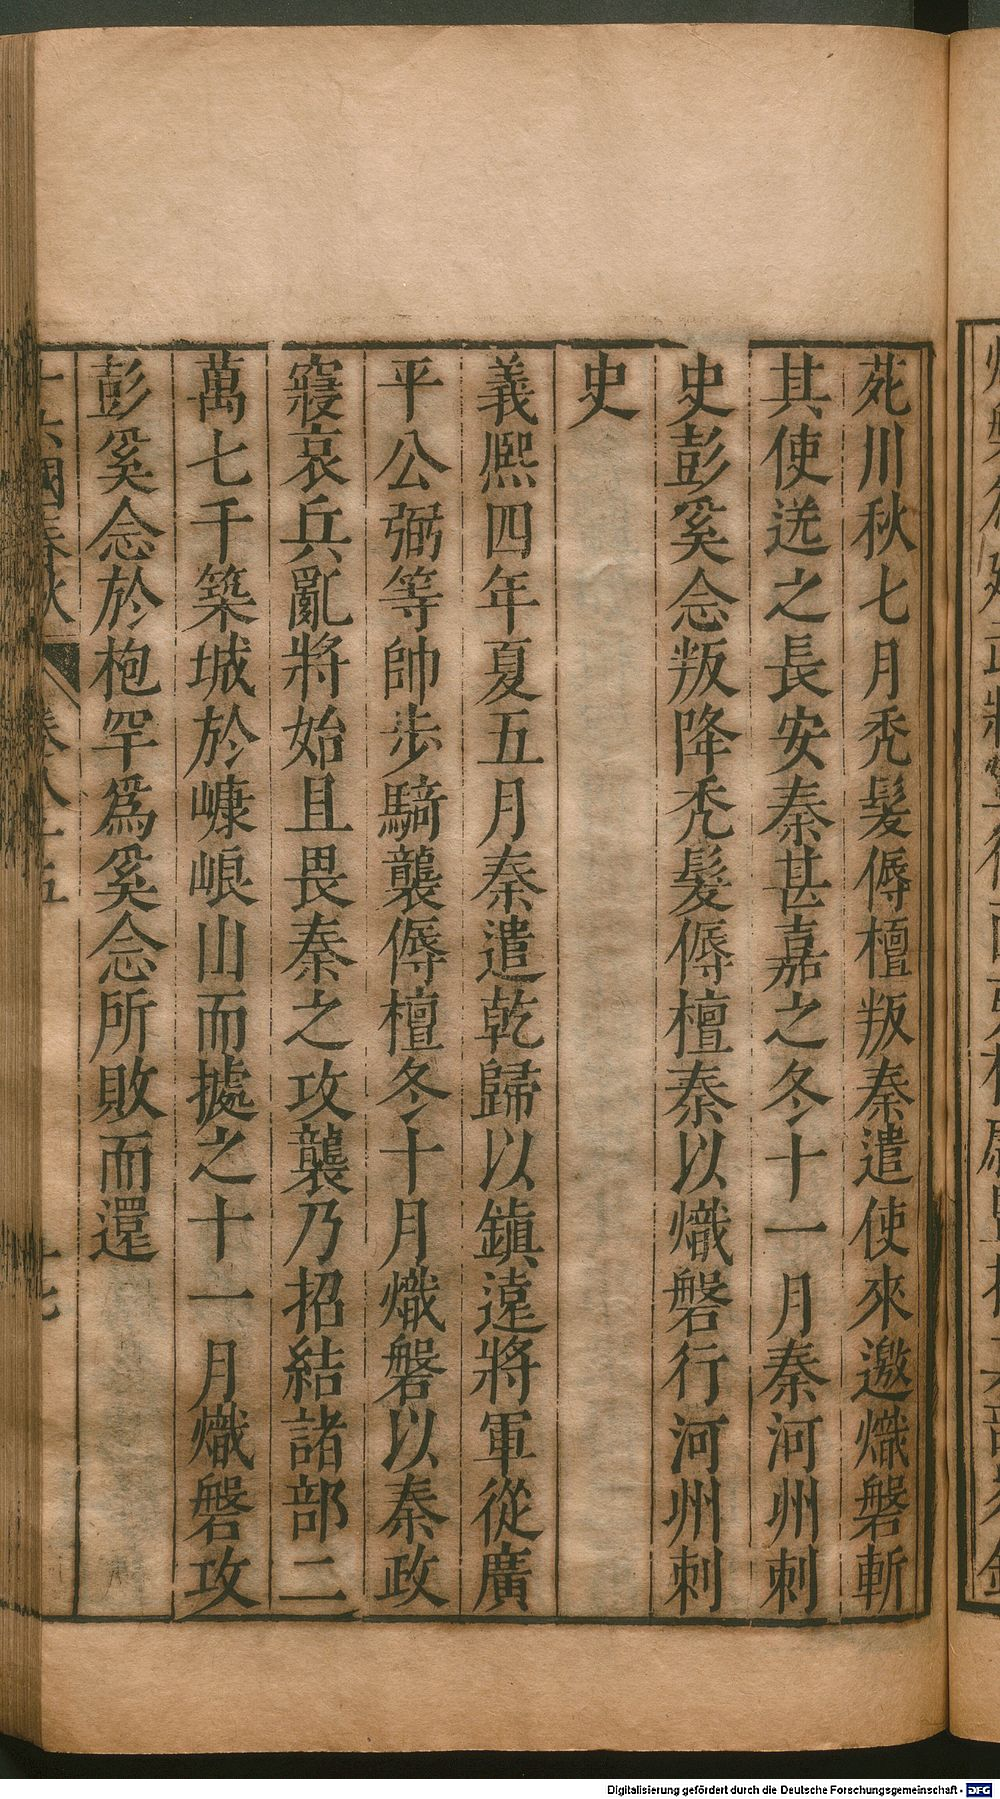 苑川秋七月禿髮傉檀叛秦遣使來邀熾磐斬
其使送之長安秦甚嘉之冬十一月秦河州刺
史彭奚念叛降禿髮傉檀秦以熾磐行河州刺
史
義熙四年夏五月秦遣乾歸以鎮遠將軍從廣
平公弼等帥步騎襲傉檀冬十月熾磐以秦政
寖衰兵亂將始且畏秦之攻襲乃招結諸部二
萬七千築城於嵻㟍山而據之十一月熾磐攻
彭奚念於枹罕爲奚念所敗而還
十六國春秋 卷八十五 十七
Digitalisierung gefördert durch die Deutsche Forschungsgemeinschaft - DFG